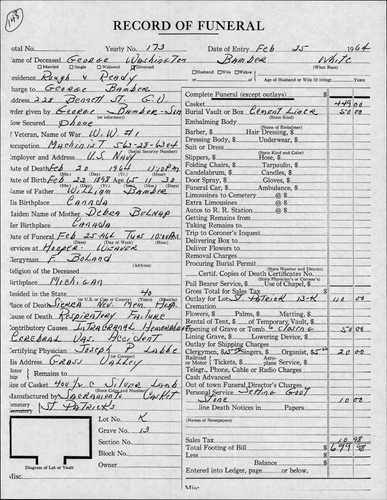 143
RECORD OF FUNERAL
Total No. Yearly No. 173 Date of Entry Feb 25 1964
Name of Deceased George Washington Bamber White
Married Single Widowed Divorced Husband Wife Widow of (What Race)
Residence Rough & Ready Age of Husband or Wife (if living) Years
Charge to George Bamber
Address 228 Bennett St. G.V.
Order given by George Bamber - Son
How Secured Phone
If Veteran, Name of War W.W. #1
Occupation Machinist 563-28-6304
(Social Security Number)
Employer and Address U.S. Navy
Date of Death Feb 22 1964 11:10 PM
Date of Birth Feb 22 1898 Age 65 11 30
Name of Father William Bamber
His Birthplace Canada
Maiden Name of Mother Debra Belnap
Her Birthplace Canada
Date of Funeral Feb 25 Tues 10:00 AM
Services at Hooper-Weaver
Clergyman F. Boland
(Address)
Religion of the Deceased
Birthplace Michigan
Resided in the State 40
(Years) (Months)
Place of Death Sierra Nev. Mem. Hosp.
Cause of Death Respiratory Failure
Contributory Causes Intracranial Hemorrhage
Cerebral Vas. Accident
Certifying Physician Joseph J Labbe
His Address Grass Valley
Remains to
Size of Casket Silver Lamb
(State Color and Number)
Manufactured by Sacramento Casket
Cemetery St Patricks
Lot No. K
Grave No. 13
Section No.
Block No.
Owner
Diagram of Lot or Vault
Complete Funeral (except outlays) $
Casket 449.00
Burial Vault or Box Cement Liner 50.00
(State Kind)
Embalming Body
(Name of Embalmer)
Barber, $ Hair Dressing, $
Dressing Body, $ Underwear, $
Suit or Dress
(State Kind and Color)
Slippers, $ Hose, $
Folding Chairs, $ Tarpaulin, $
Candelabrum, $ Candles, $
Door Spray, $ Gloves, $
Funeral Car, $ Ambulance, $
Limousines to Cemetery @ $
Extra Limousines @ $
Autos to R. R. Station @ $
Getting Remains from
Taking Remains to
Trip to Coroner's Inquest
Delivering Box to
Deliver Flowers to
Removal Charges
Procuring Burial Permit
(State Number and District)
Certif. Copies of Death Certificates No.
(State Physician's or Coroner's)
Pall Bearer Service, $ Use of Chapel, $
Gross Total for Sales Tax $
Outlay for Lot St Patrick 13-K 110.00
Cremation
Flowers, $ Palms, $ Matting, $
Rental of Tent, $ or Temporary Vault, $
Opening of Grave or Tomb & Closing 50.00
Lining Grave, $ Lowering Device, $
Outlay for Shipping Charges
Clergyman, $ Singers, $ Organist, $ 20.00
Tickets, $ plane Service, $
Telegr., Phone, Cable or Radio Charges
Cash Advanced
Out of town Funeral Director's Charges
Personal Service Setting Govt
Stone 10.00
line Death Notices in Papers
(Names of Newspapers)
Sales Tax 10.98
Total Footing of Bill $ 699.98
Less
Balance $
Entered into Ledger, page or below.
Misc.